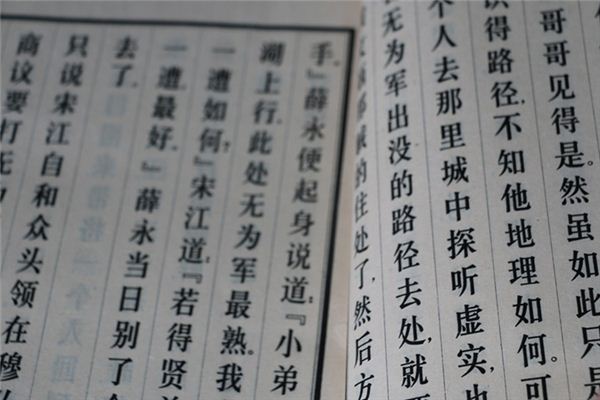 哥哥见得是。然虽如此只是
识得路径,不知他地理如何。可
个人去那里城中探听虚实,
无为军出没的路径去处,就要
的住处了,然后方
手。』薛永便起身说道:『小弟
湖上行。此处无为军最熟。我
一遭如何?』宋江道:『若得贤
一遭最好。』薛永当日别了
去了。
只说宋江自和众头领在穆
商议要打无